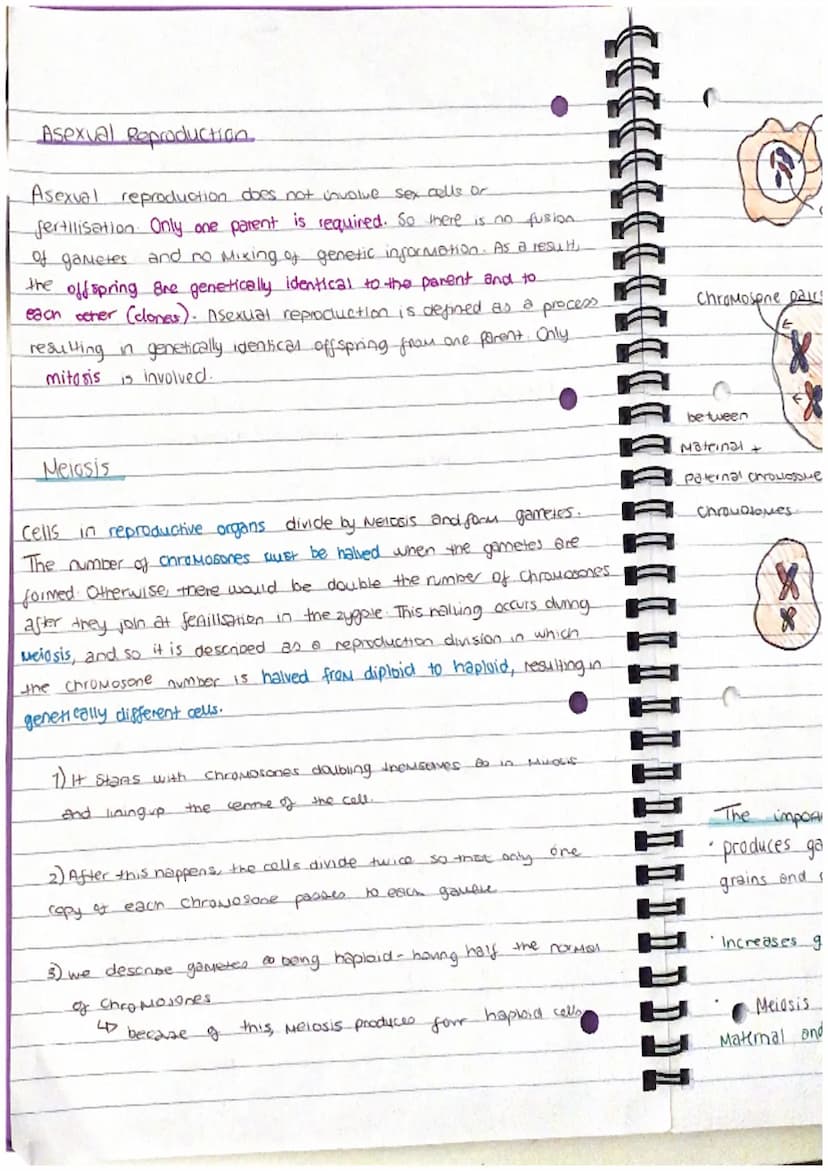 Asexual Reproduction
Asexual reproduction does not involve sex cells or
fertilisation. Only one parent is required. So there is no fusion
of gametes and no mixing of genetic information. As a result,
the offspring are genetically identical to the parent and to
each other (clones). Asexual reproduction is defined as a process
resulting in genetically identical offspring from one parent. Only
mitosis is involved.
Meiosis
Cells in reproductive organs divide by Meiosis and form gametes.
The number of chromosones must be halved when the gametes are
formed. Otherwise, there would be double the number of chromosones
after they join at fertilisation in the zygote. This halving occurs during
Meiosis, and so it is described as a reproduction division in which
the chromosone number is halved from diploid to haploid, resulting in
genetically different cells.
1) It starts with chromosones doubling themselves as in Mitosis
and lining up the centre of the cell.
2) After this happens, the cells divide twice so that only one
copy of each chromosone passes to each gamete
3) we describe gametes as being haploid - having half the normal
of chromosones
↳ because of this, meiosis produces four haploid cells
Chromosone pairs
between
Maternal +
paternal chromosome
Chromotomes
The
· produces
grains and
· Increases
· Meiosis
Maternal and